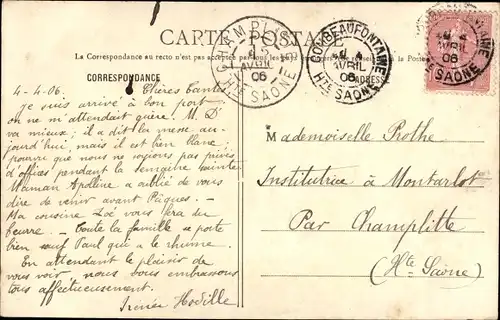 CARTE POSTALE
La Correspondance au recto n'est pas acceptée par tous les pays
CORRESPONDANCE
ADRESSE
CHAMPLITTE
AVRIL
06
Hte SAÔNE
COMBEAUFONTAINE
4
AVRIL
06
Hte SAÔNE
COMBEAUFONTAINE
4
AVRIL
06
SAÔNE
4-4-06. Chères tantes
Je suis arrivé à bon port
on ne m'attendait guère. M. D
va mieux; il a dit la messe au-
jourd'hui, mais il est bien blanc;
pourvu que nous ne soyons pas privés
d'offices pendant la semaine sainte
Maman Apolline a oublié de vous
dire de venir avant Pâques. -
Ma cousine Zoé vous fera du
beurre. - Toute la famille se porte
bien sauf Paul qui a le rhume.
En attendant le plaisir de
vous voir, nous vous embrassons
tous affectueusement.
Irénée
Mademoiselle Prothe
Institutrice à Montarlot
Par Champlitte
(Hte Saône)